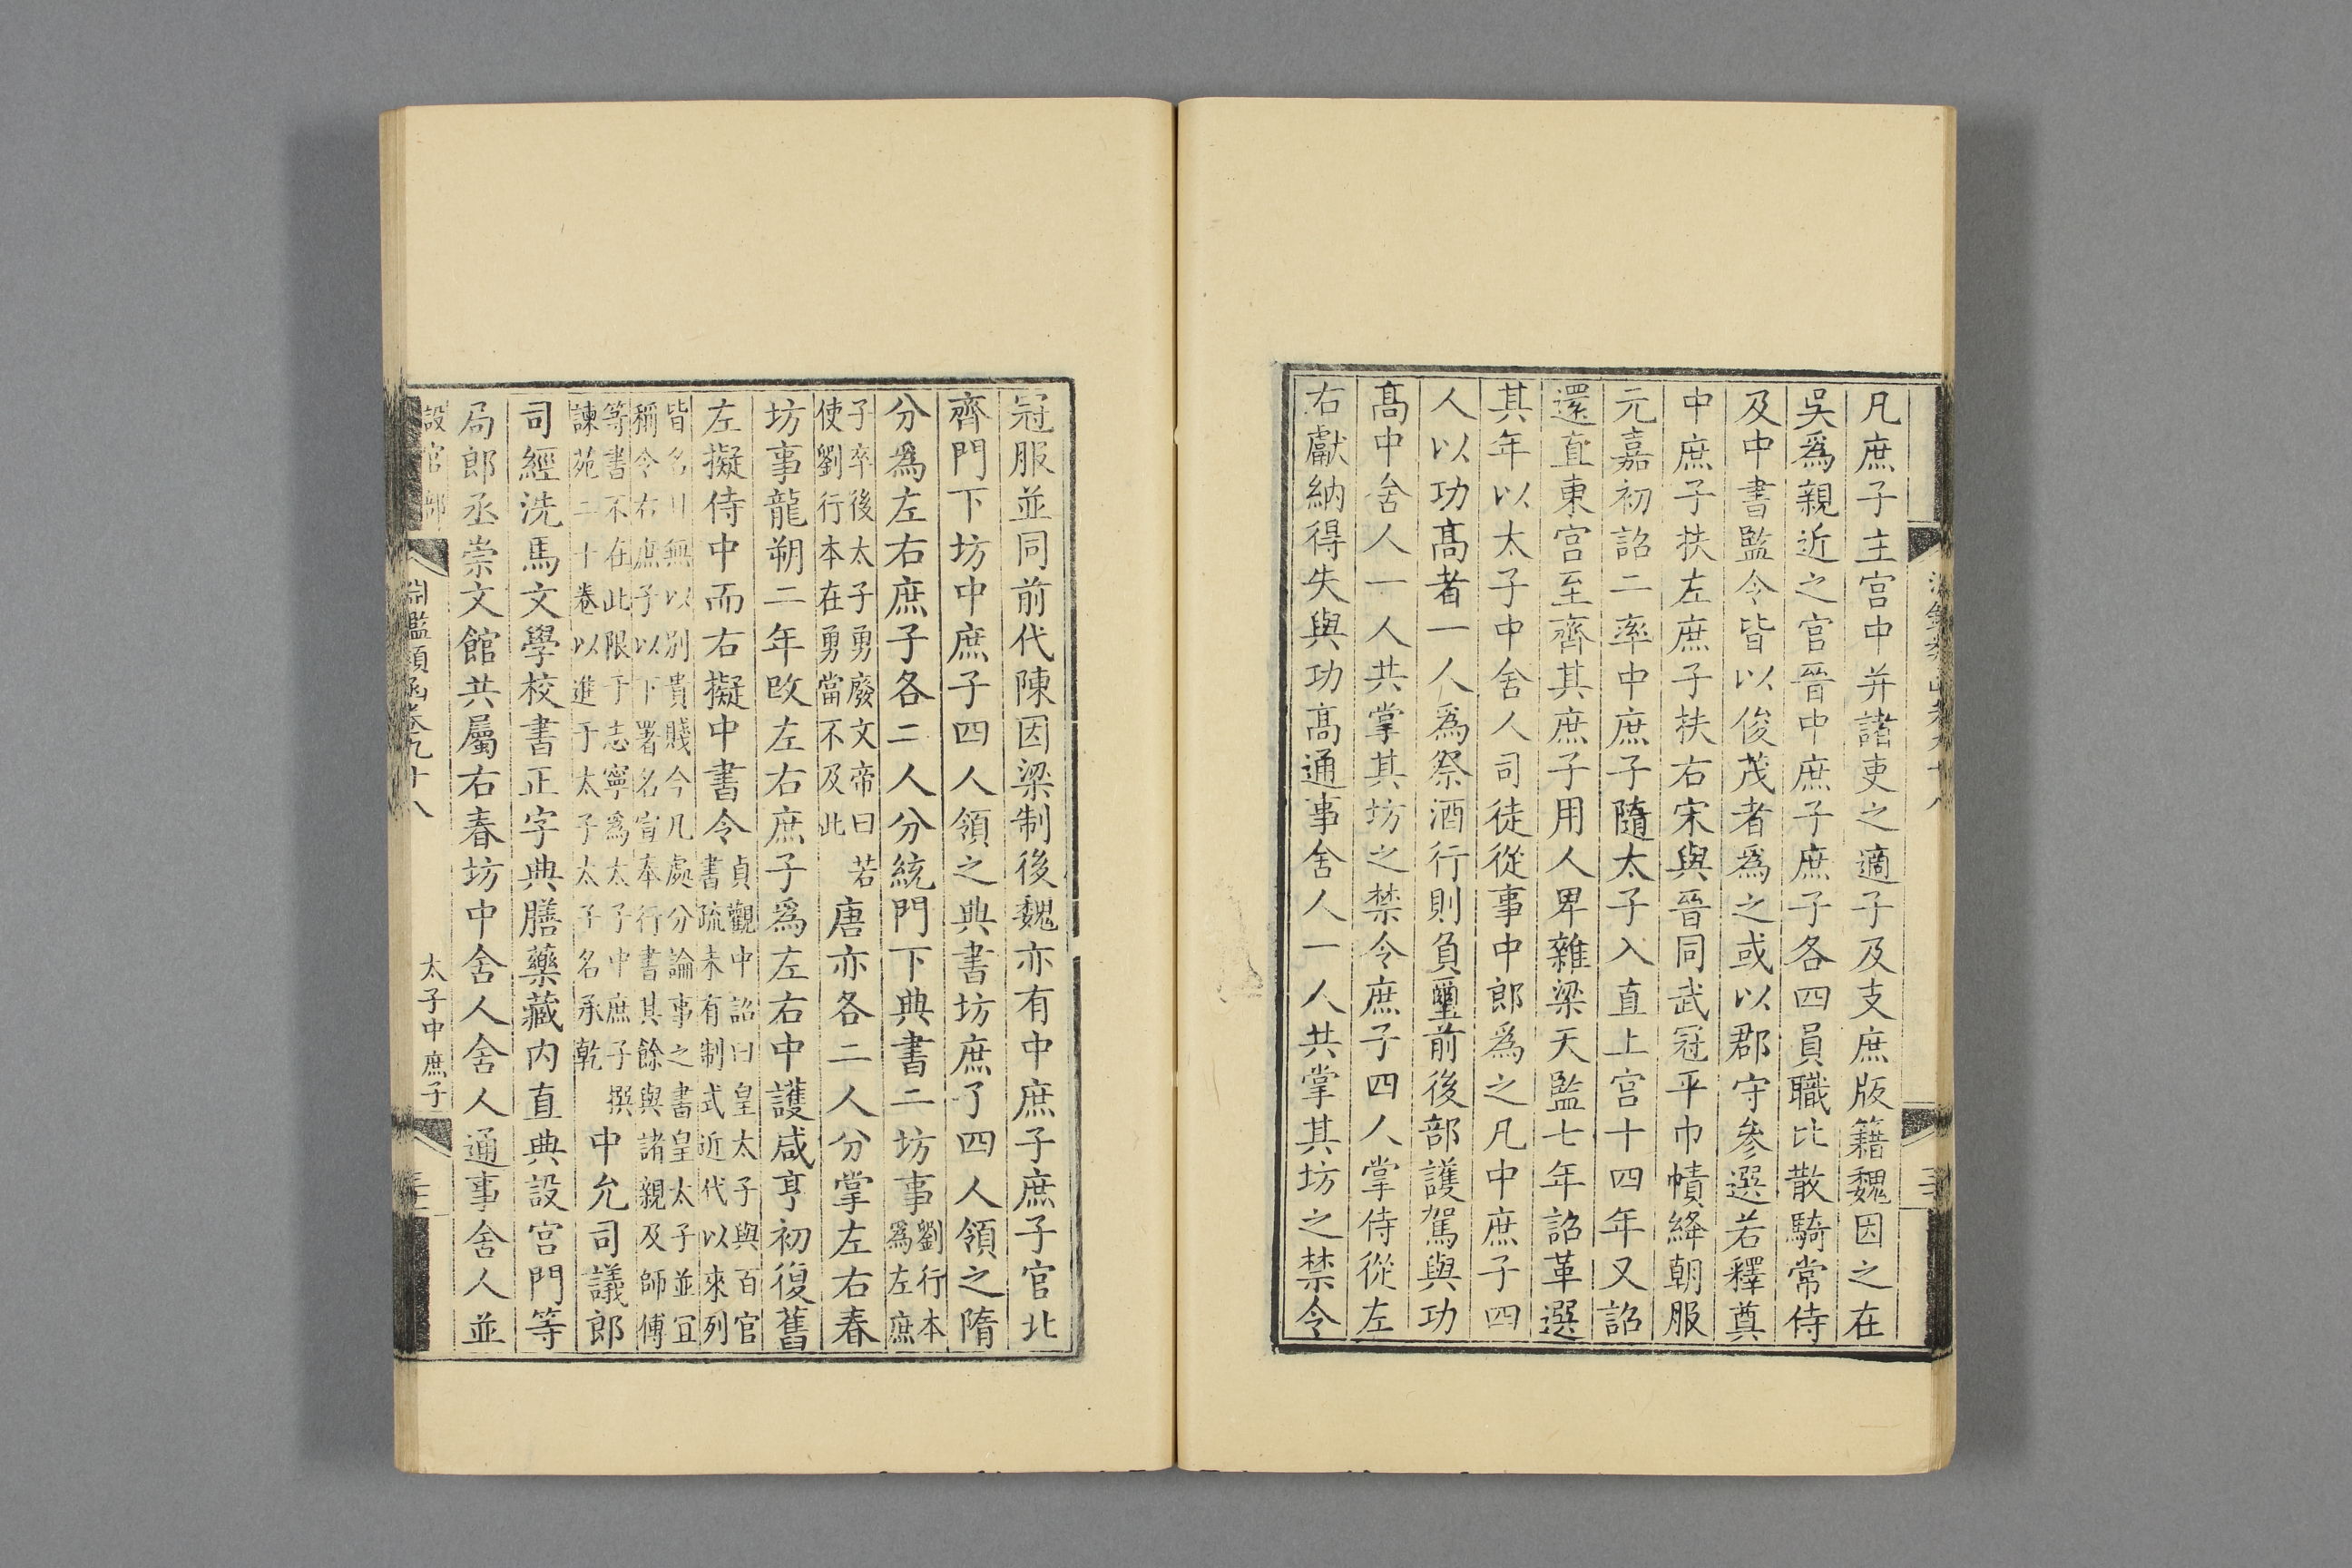 凡庶子主宫中并諸吏之適子及支庶版籍魏因之在
吳爲親近之官晉中庶子庶子各四員職比散騎常侍
及中書監令皆以俊茂者爲之或以郡守參選若釋奠
中庶子扶左庶子扶右宋與晉同武冠平巾幘絳朝服
元嘉初詔二率中庶子隨太子入直上宫十四年又詔
還直東宫至齊其庶子用人卑雜梁天監七年詔革選
其年以太子中舍人司徒從事中郎爲之凡中庶子四
人以功髙者一人爲祭酒行則負璽前後部護駕與功
髙中舍人一人共掌其坊之禁令庶子四人掌侍從左
右獻納得失與功髙通事舍人一人共掌其坊之禁令
冠服並同前代陳因梁制後魏亦有中庶子庶子官北
齊門下坊中庶子四人領之典書坊庶子四人領之隋
分爲左右庶子各二人分統門下典書二坊事劉行本
爲左庶
子卒後太子勇廢文帝曰若
使劉行本在勇當不及此唐亦各二人分掌左右春
坊事龍朔二年改左右庶子爲左右中護咸亨初復舊
左擬侍中而右擬中書令貞觀中詔曰皇太子與百官
書疏未有制式近代以來列
皆名 無以别貴賤今凡處分論事之書皇太子並冝
稱令右庶子以下署名宣奉行書其餘與諸親及師傅
等書不在此限于志寧爲太子中庶子撰
諫苑二十卷以進于太子太子名承乾中允司議郎
司經洗馬文學校書正字典膳藥藏内直典設宫門等
局郎丞崇文館共屬右春坊中舍人舍人通事舍人並
設官部
淵鑑類函卷九十八
太子中庶子